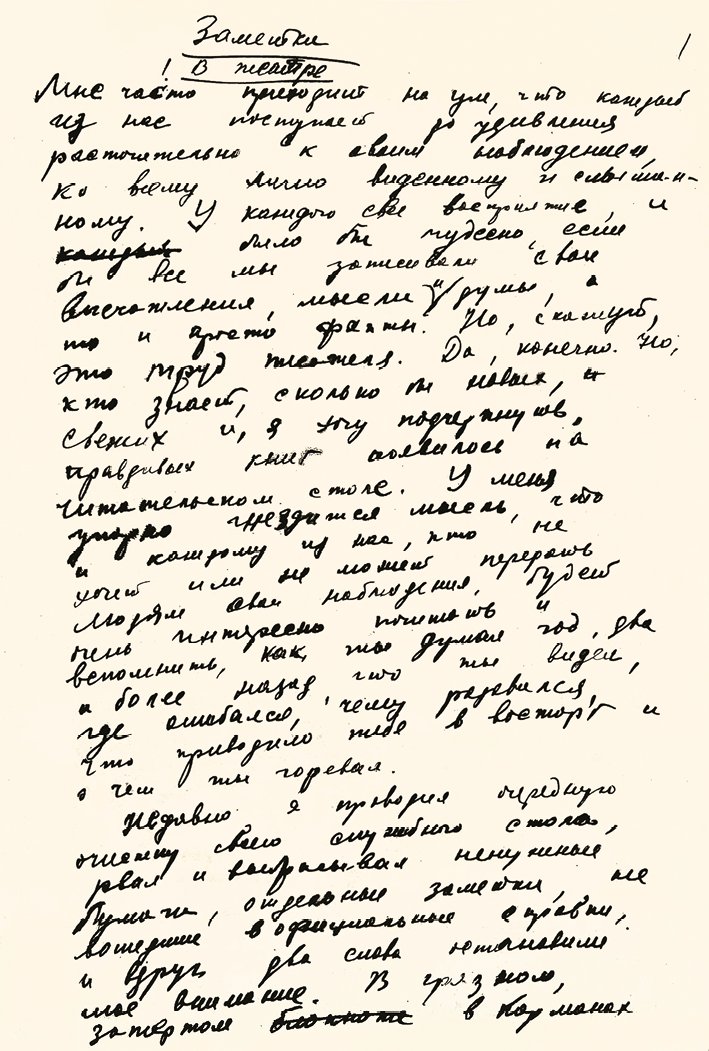 Заметки
1
! В театре
Мне часто приходит на ум, что каждый
из нас поступает до удивления
расточительно к своим наблюдениям,
ко всему лично виденному и слышан-
ному. У каждого свое восприятие, и
каждый было бы чудесно, если
бы все мы записывали свои
впечатления, мысли и думы, а
то и просто факты. Но, скажут,
это труд писателя. Да, конечно. Но,
кто знает, сколько бы новых, и
свежих и, я хочу подчеркнуть,
правдивых книг появилось на
читательском столе. У меня
упорно гнездится мысль, что
и каждому из нас, кто не
хочет или не может передать
людям свои наблюдения, будет
очень интересно почитать и
вспомнить, как ты думал год, два
и более назад что ты видел,
где ошибался, чему радовался,
что приводило тебя в восторг и
о чем ты горевал.
Недавно я проводил очередную
очистку своего служебного стола,
рвал и выбрасывал ненужные
бумаги, отдельные заметки, не
вошедшие в официальные справки,
и вдруг два слова остановили
мое внимание. В грязном,
затертом блокноте в карманах